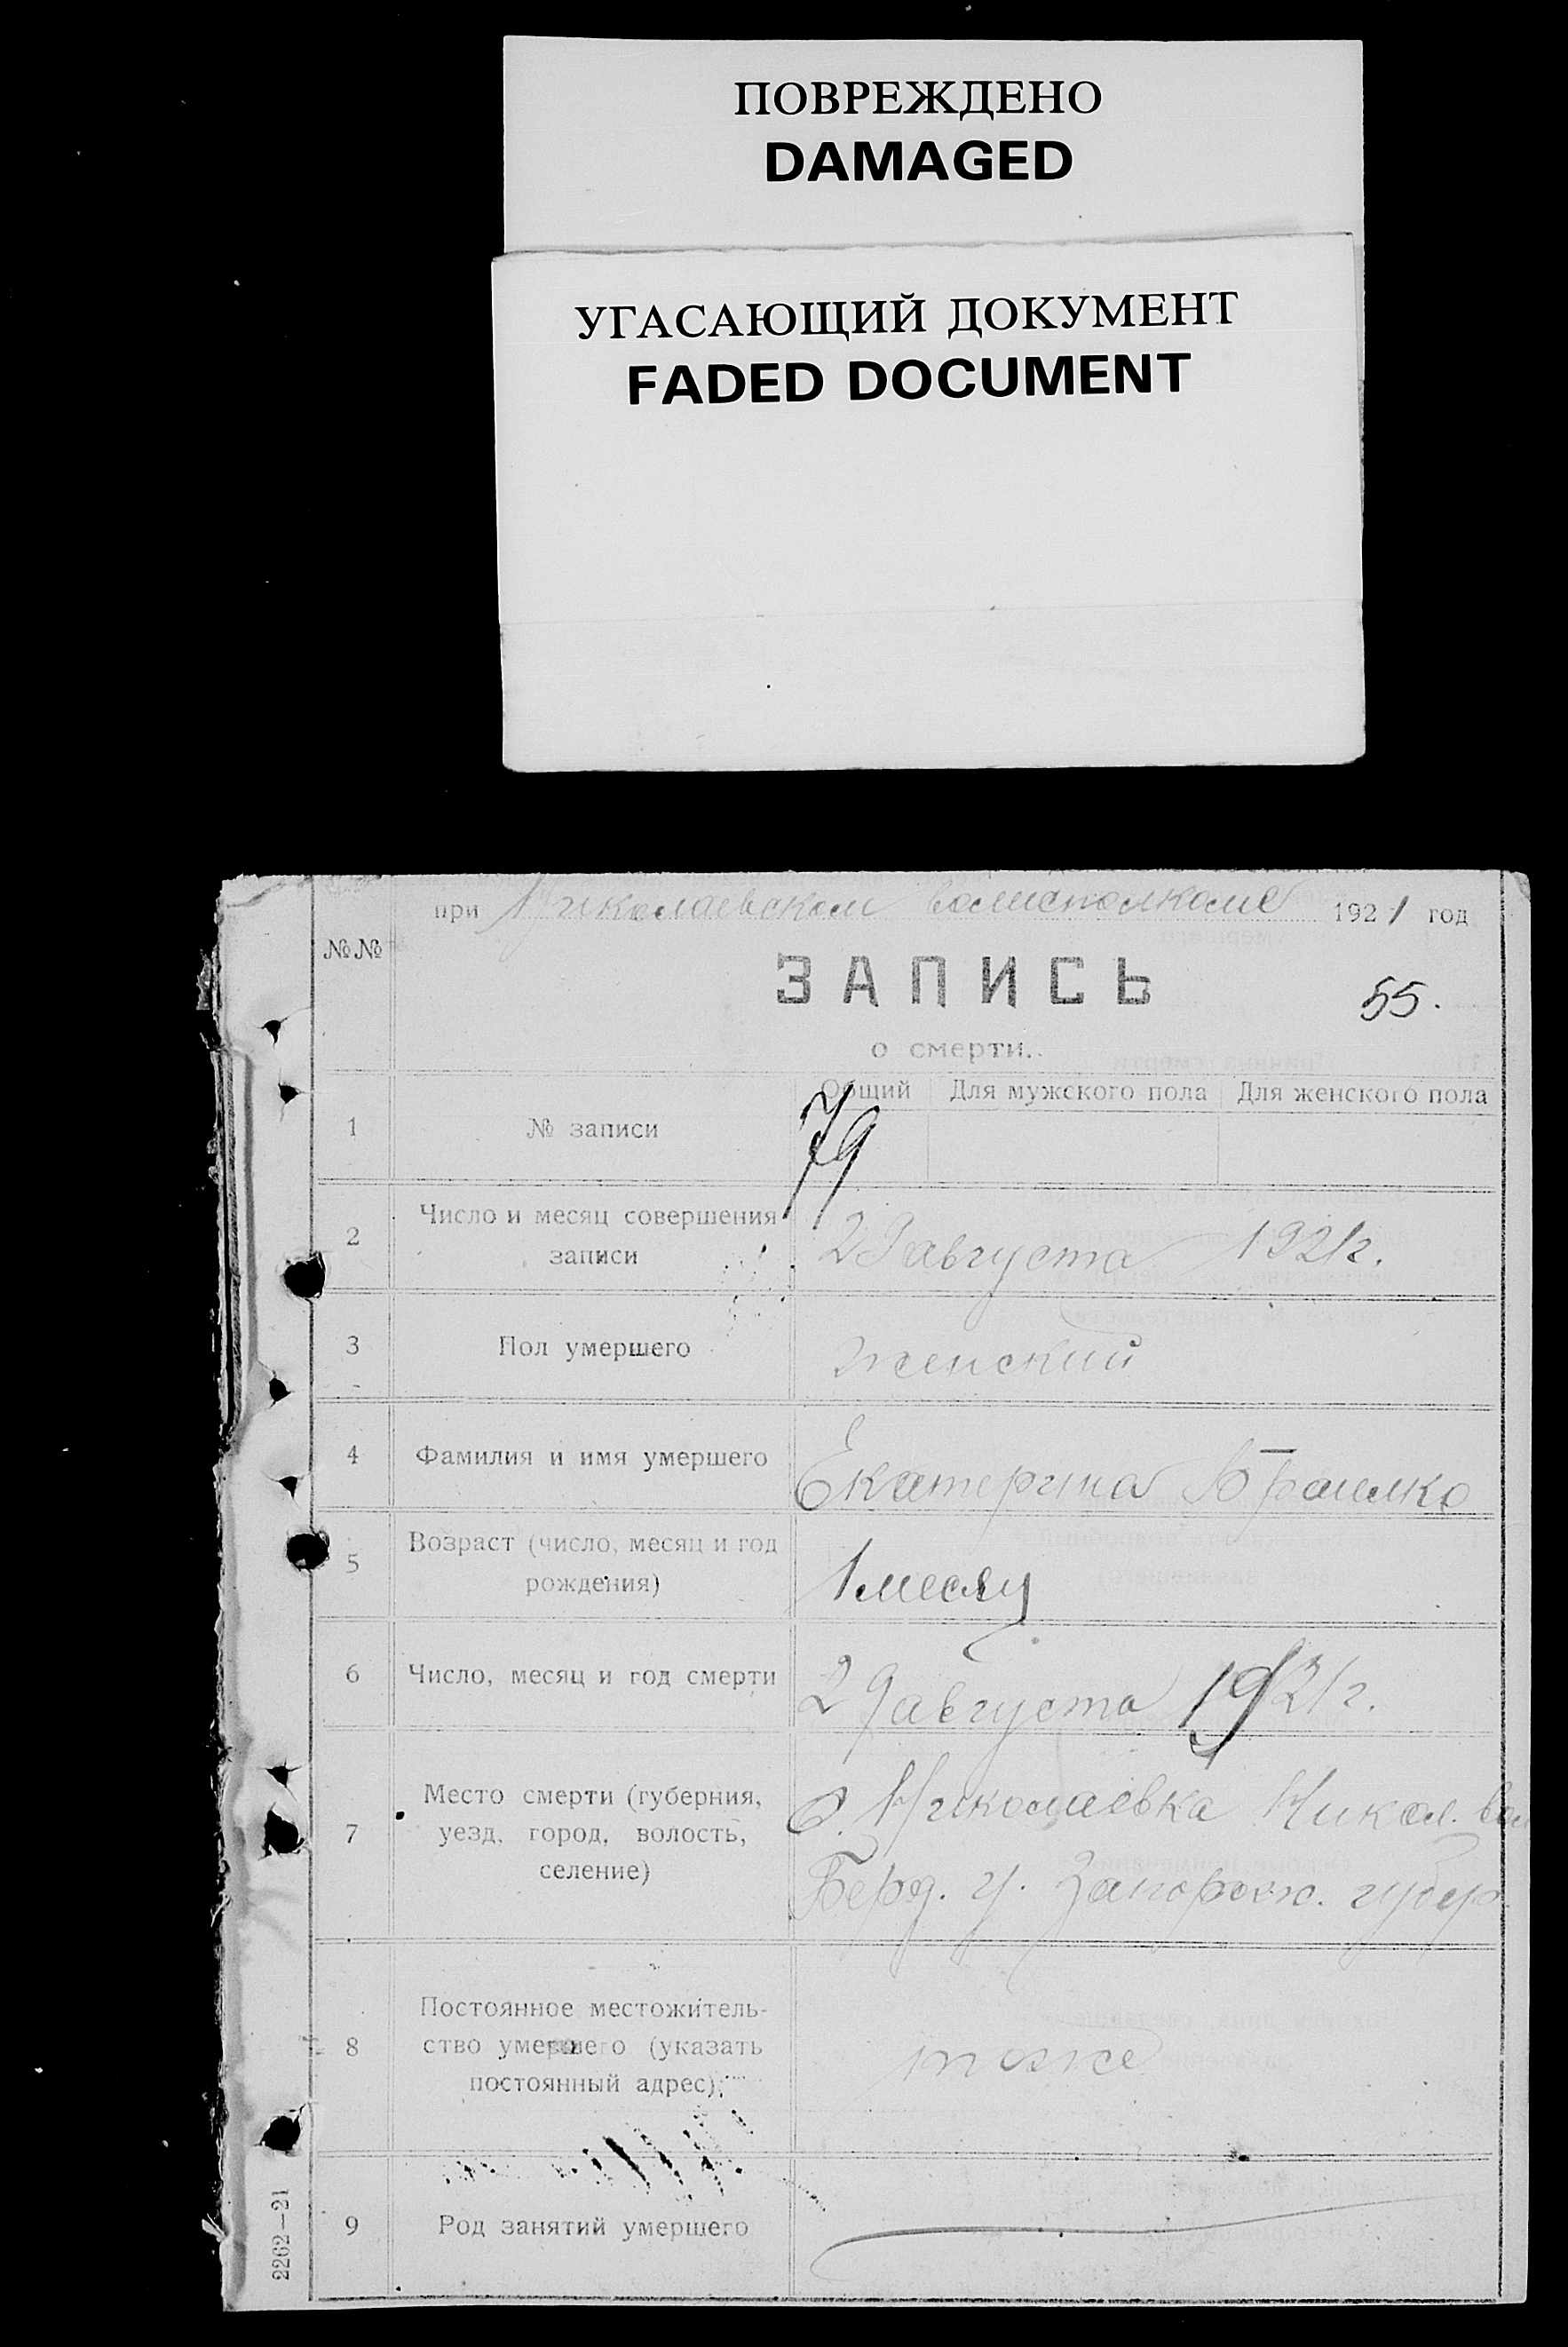 ПОВРЕЖДЕНО
DAMAGED
УГАСАЮЩИЙ ДОКУМЕНТ
FADED DOCUMENT
при Николаевском волисполкоме 1921 год
№№
ЗАПИСЬ
55.
о смерти.
Общий Для мужского пола Для женского пола
1 № записи 79
2 Число и месяц совершения записи
29 августа 1921 г.
3 Пол умершего женский
4 Фамилия и имя умершего Екатерина
5 Возраст (число, месяц и год рождения)
1 месяц
6 Число, месяц и год смерти 29 августа 1921 г.
7 Место смерти (губерния, уезд, город, волость, селение)
с. Николаевка Никол. вол
Берд. у. Запорож. губер.
8 Постоянное местожитель-
ство умершего (указать
постоянный адрес)
тоже
9 Род занятий умершего
2262—21